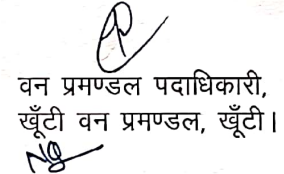 वन प्रमण्डल पदाधिकारी,
खूँटी वन प्रमण्डल, खूँटी।